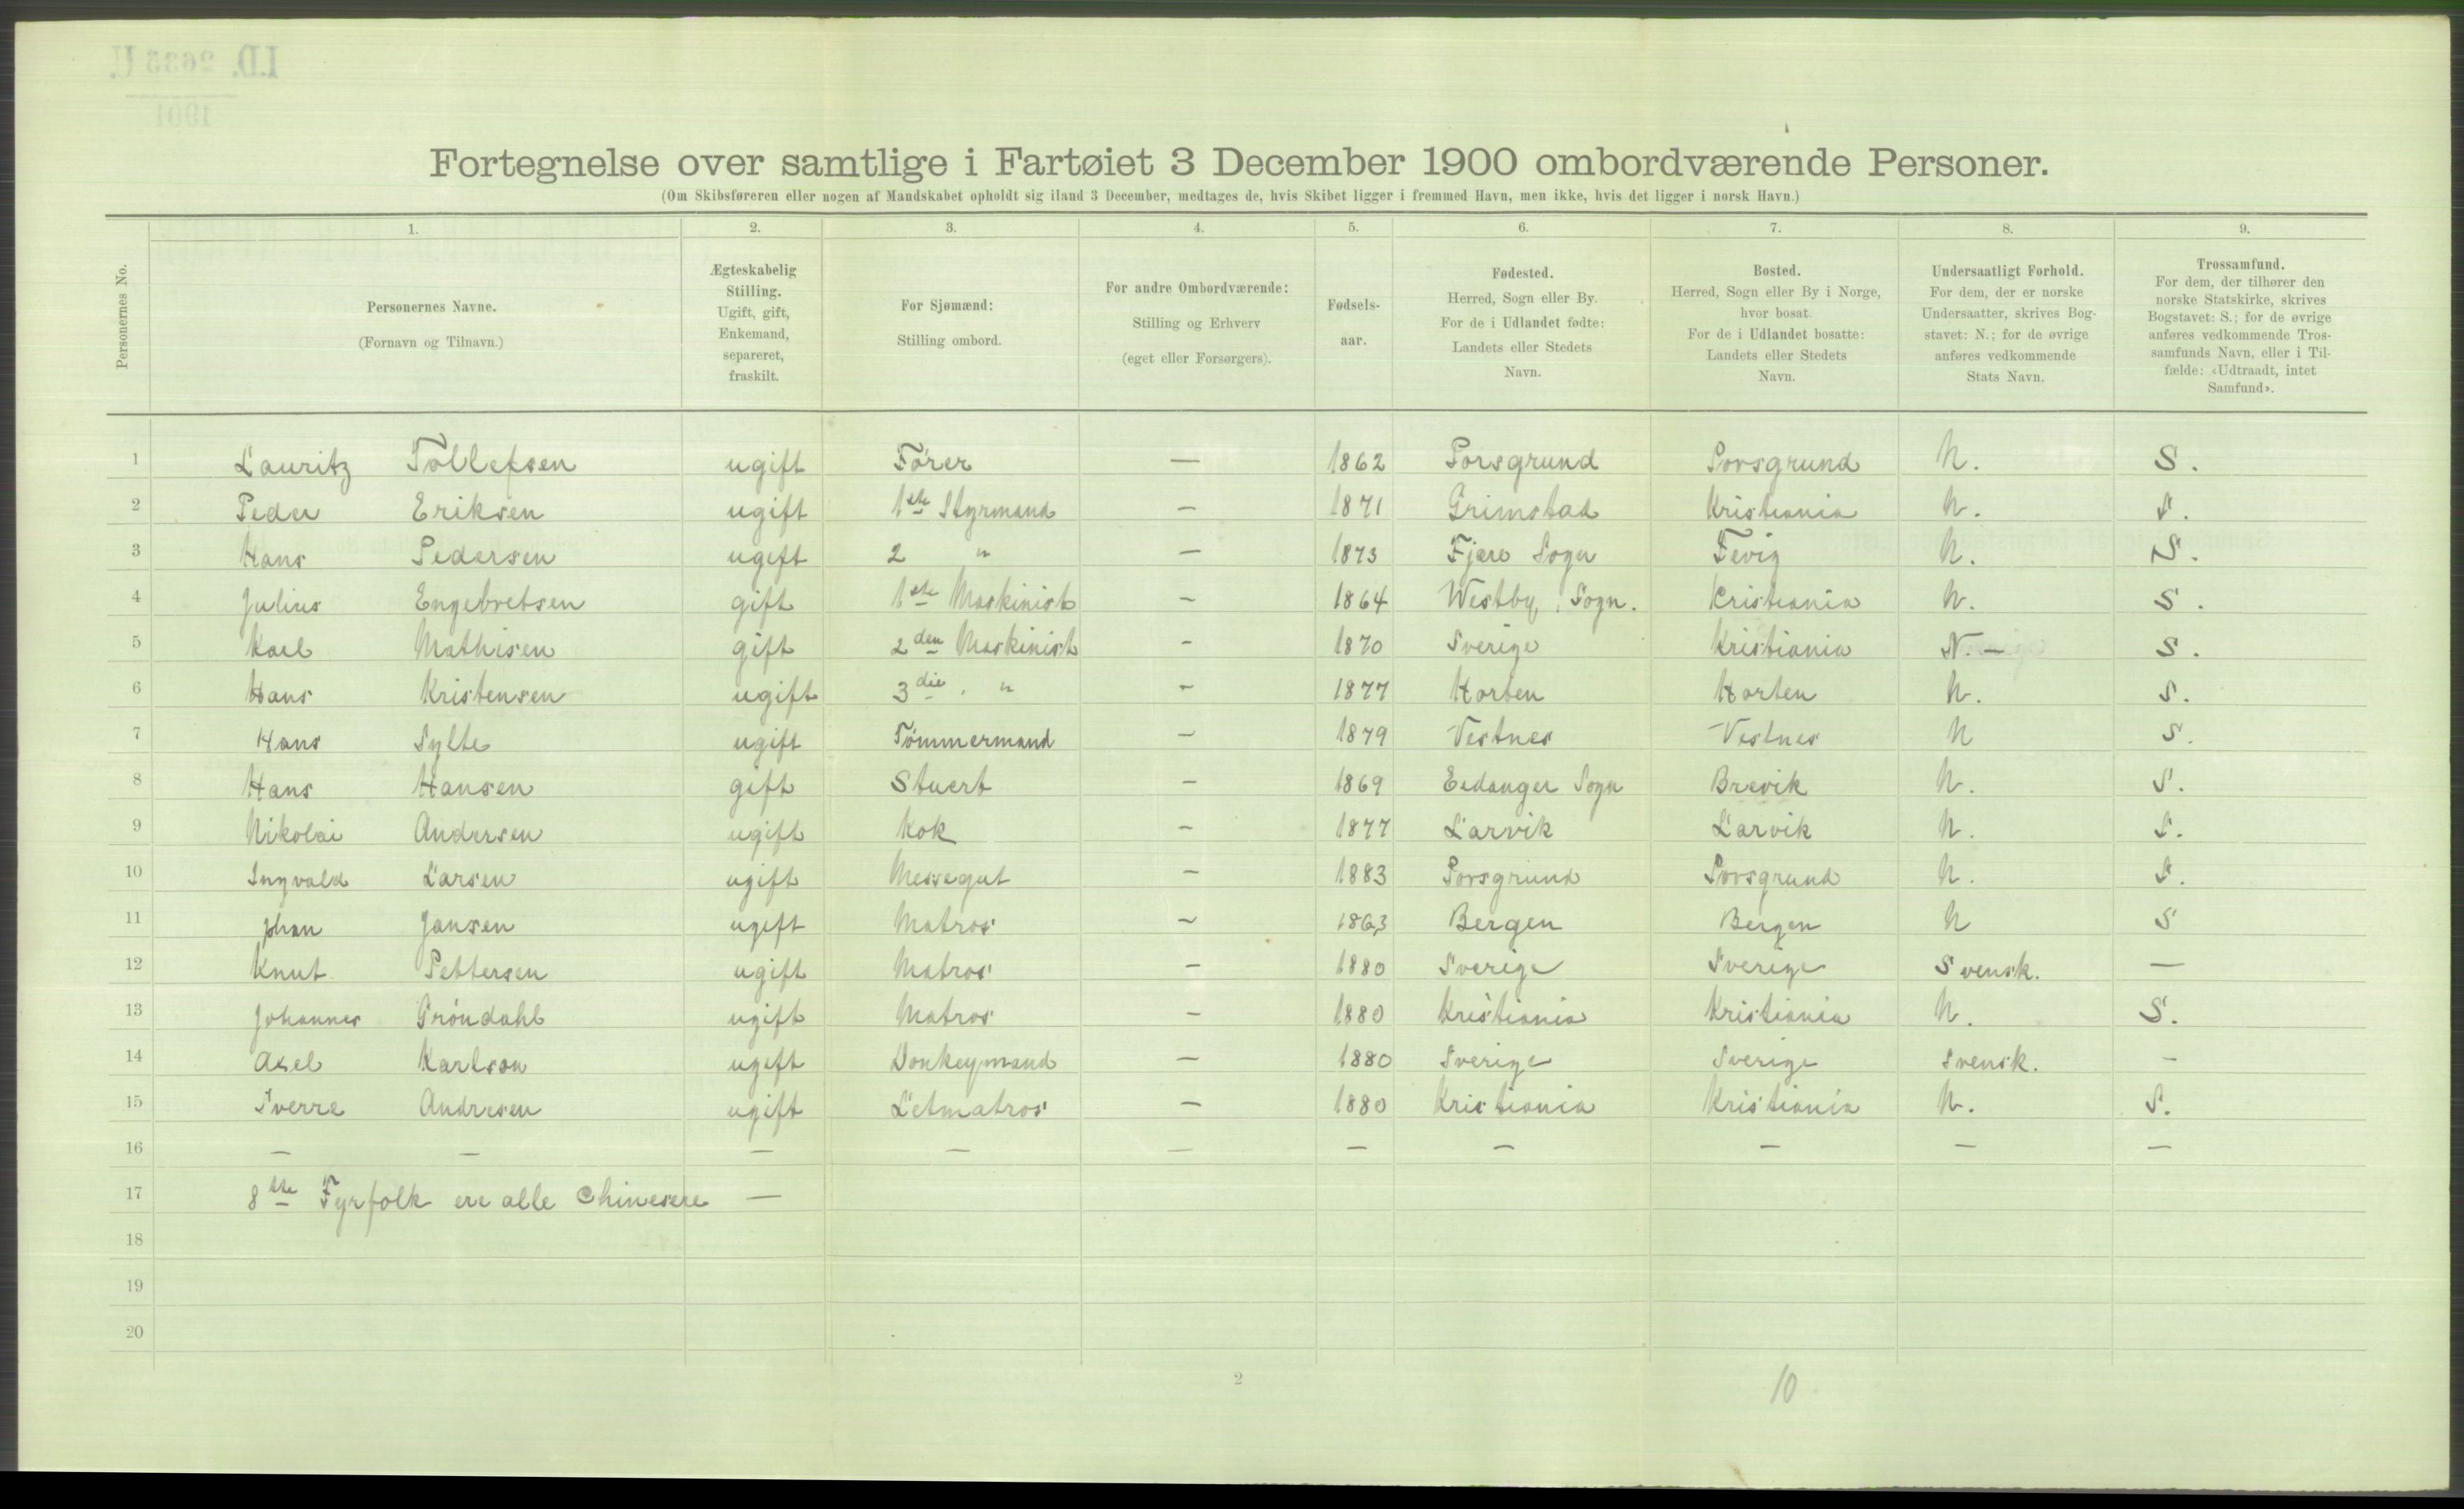 Fortegnelse over samtlige i Fartøiet 3 December 1900 ombordværende Personer.
(Om Skibsføreren eller nogen af Mandskabet opholdt sig iland 3 December, medtages de, hvis Skibet ligger i fremmed Havn, men ikke, hvis det ligger i norsk Havn.)
1. 2. 3. 4. 5. 6. 7. 8. 9.
Personernes No.
Personernes Navne.
(Fornavn og Tilnavn.)
Ægteskabelig
Stilling.
Ugift, gift,
Enkemand,
separeret,
fraskilt.
For Sjømænd:
Stilling ombord.
For andre Ombordværende:
Stilling og Erhverv
(eget eller Forsørgers).
Fødsels-
aar.
Fødested.
Herred, Sogn eller By.
For de i Udlandet fødte:
Landets eller Stedets
Navn.
Bosted.
Herred, Sogn eller By i Norge,
hvor bosat.
For de i Udlandet bosatte:
Landets eller Stedets
Navn.
Undersaatligt Forhold.
For dem, der er norske
Undersaatter, skrives Bog-
stavet: N.; for de øvrige
anføres vedkommende
Stats Navn.
Trossamfund.
For dem, der tilhører den
norske Statskirke, skrives
Bogstavet: S.; for de øvrige
anføres vedkommende Tros-
samfunds Navn, eller i Til-
fælde: «Udtraadt, intet
Samfund».
1 Lauritz Tollefsen ugift Fører — 1862 Porsgrund Porsgrund N. S.
2 Peder Eriksen ugift 1ste Styrmand — 1871 Grimstad Kristiania N. S.
3 Hans Pedersen ugift 2 " — 1873 Fjære Sogn Fevig N. S.
4 Julius Engebretsen gift 1ste Maskinist — 1864 Westby, Sogn. Kristiania N. S.
5 Karl Mathisen gift 2den Maskinist — 1870 Sverige Kristiania N. — S.
6 Hans Kristensen ugift 3die " — 1877 Horten Horten N. S.
7 Hans Sylte ugift Tömmermand — 1879 Vestnes Vestnes N S.
8 Hans Hansen gift Stuert — 1869 Eidanger Sogn Brevik N. S.
9 Nikolai Andersen ugift Kok — 1877 Larvik Larvik N. S.
10 Ingvald Larsen ugift Messegut — 1883 Porsgrund Porsgrund N. S.
11 Johan Jansen ugift Matros — 1863 Bergen Bergen N S
12 Knut Pettersen ugift Matros — 1880 Sverige Sverige Svensk. —
13 Johannes Gröndahl ugift Matros — 1880 Kristiania Kristiania N. S.
14 Axel Karlson ugift Donkeymand — 1880 Sverige Sverige Svensk. —
15 Sverre Andresen ugift Letmatros — 1880 Kristiania Kristiania N. S.
16 — — — — — — — — — —
17 8tte Fyrfolk ere alle Chinesere —
18
19
20
2
10